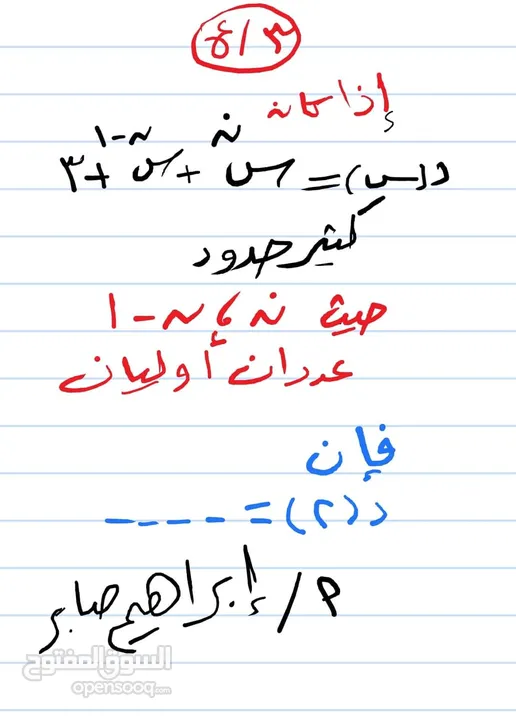 ٣/ع
إذا كانه
د(س) = س^ن + س^ن-١ + ٣
كثير حدود
حيث ن ، ن - ١
عددان أوليان
فإن
د(٢) = ----
م/ إبراهيم صابر
السوق المفتوح
opensooq.com